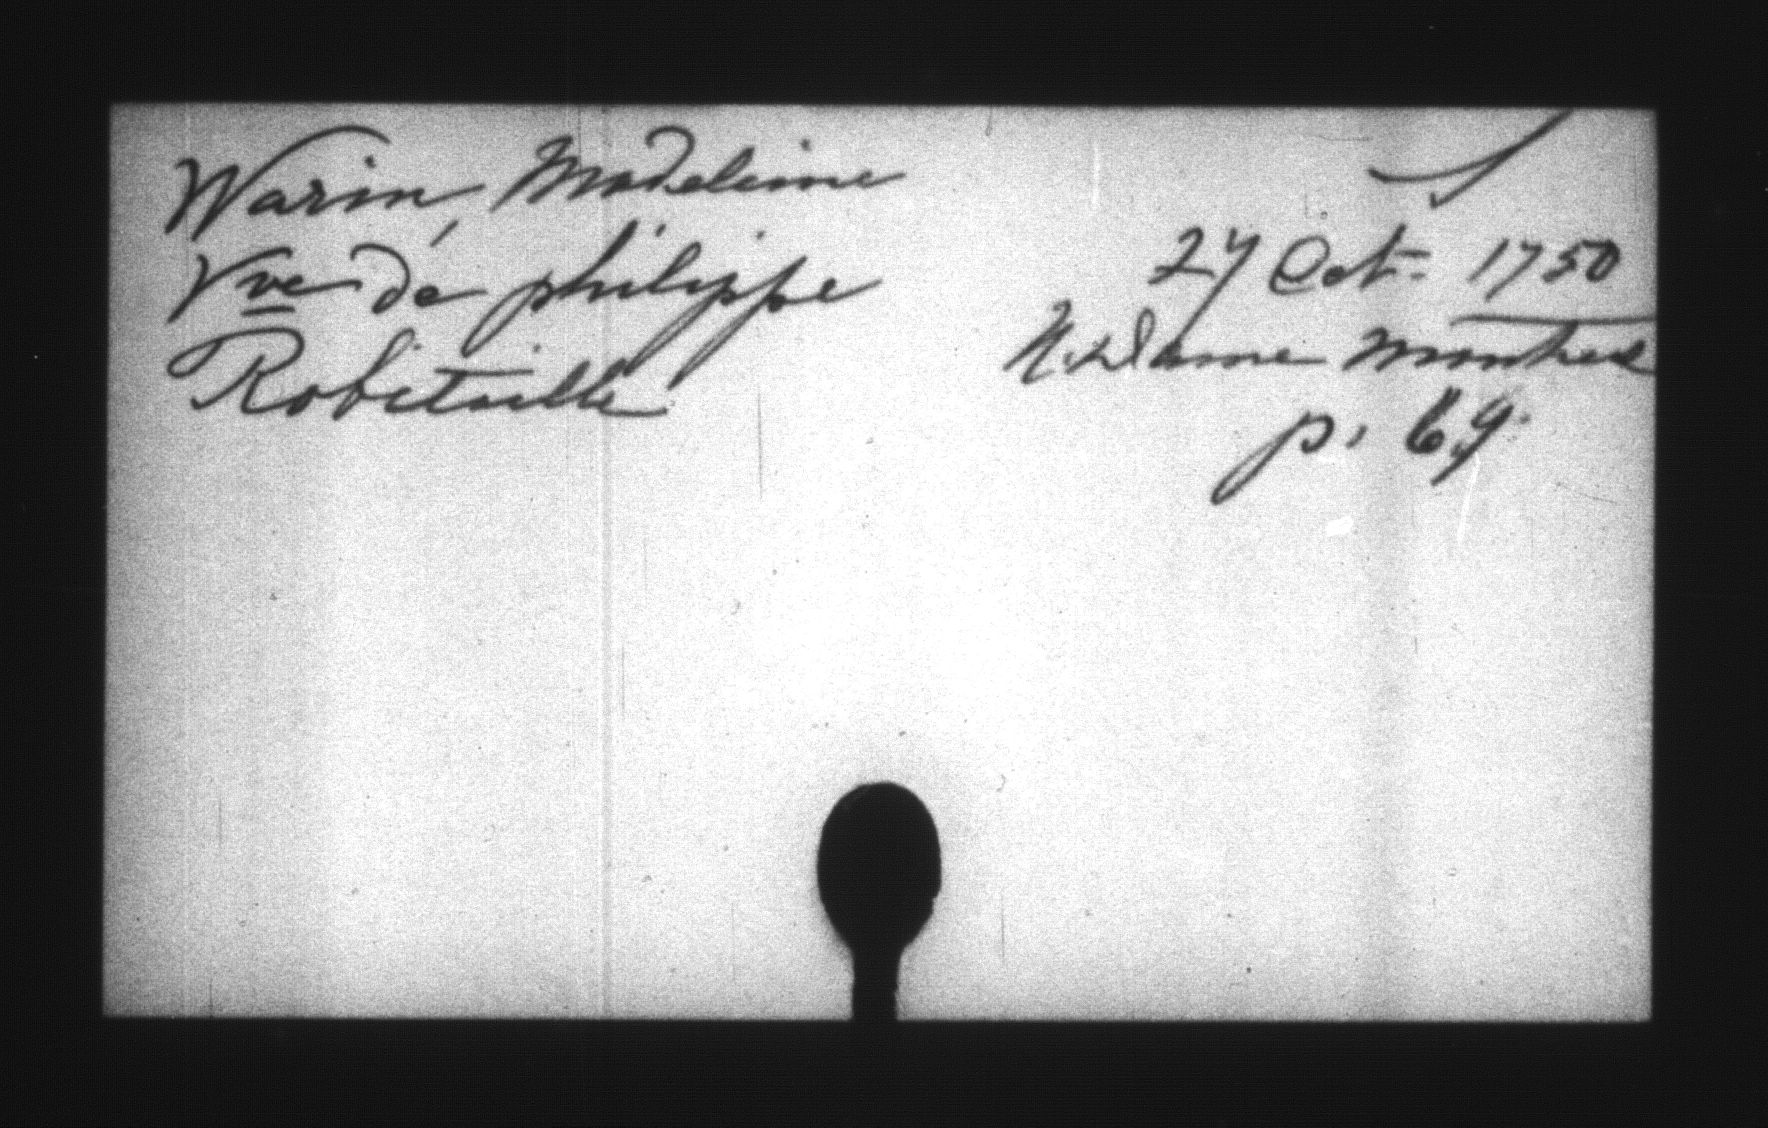 Warin, Madeleine
Vve de philippe
Robitaille
S
27 Oct. 1750
N. Dame Montreal
p. 69.